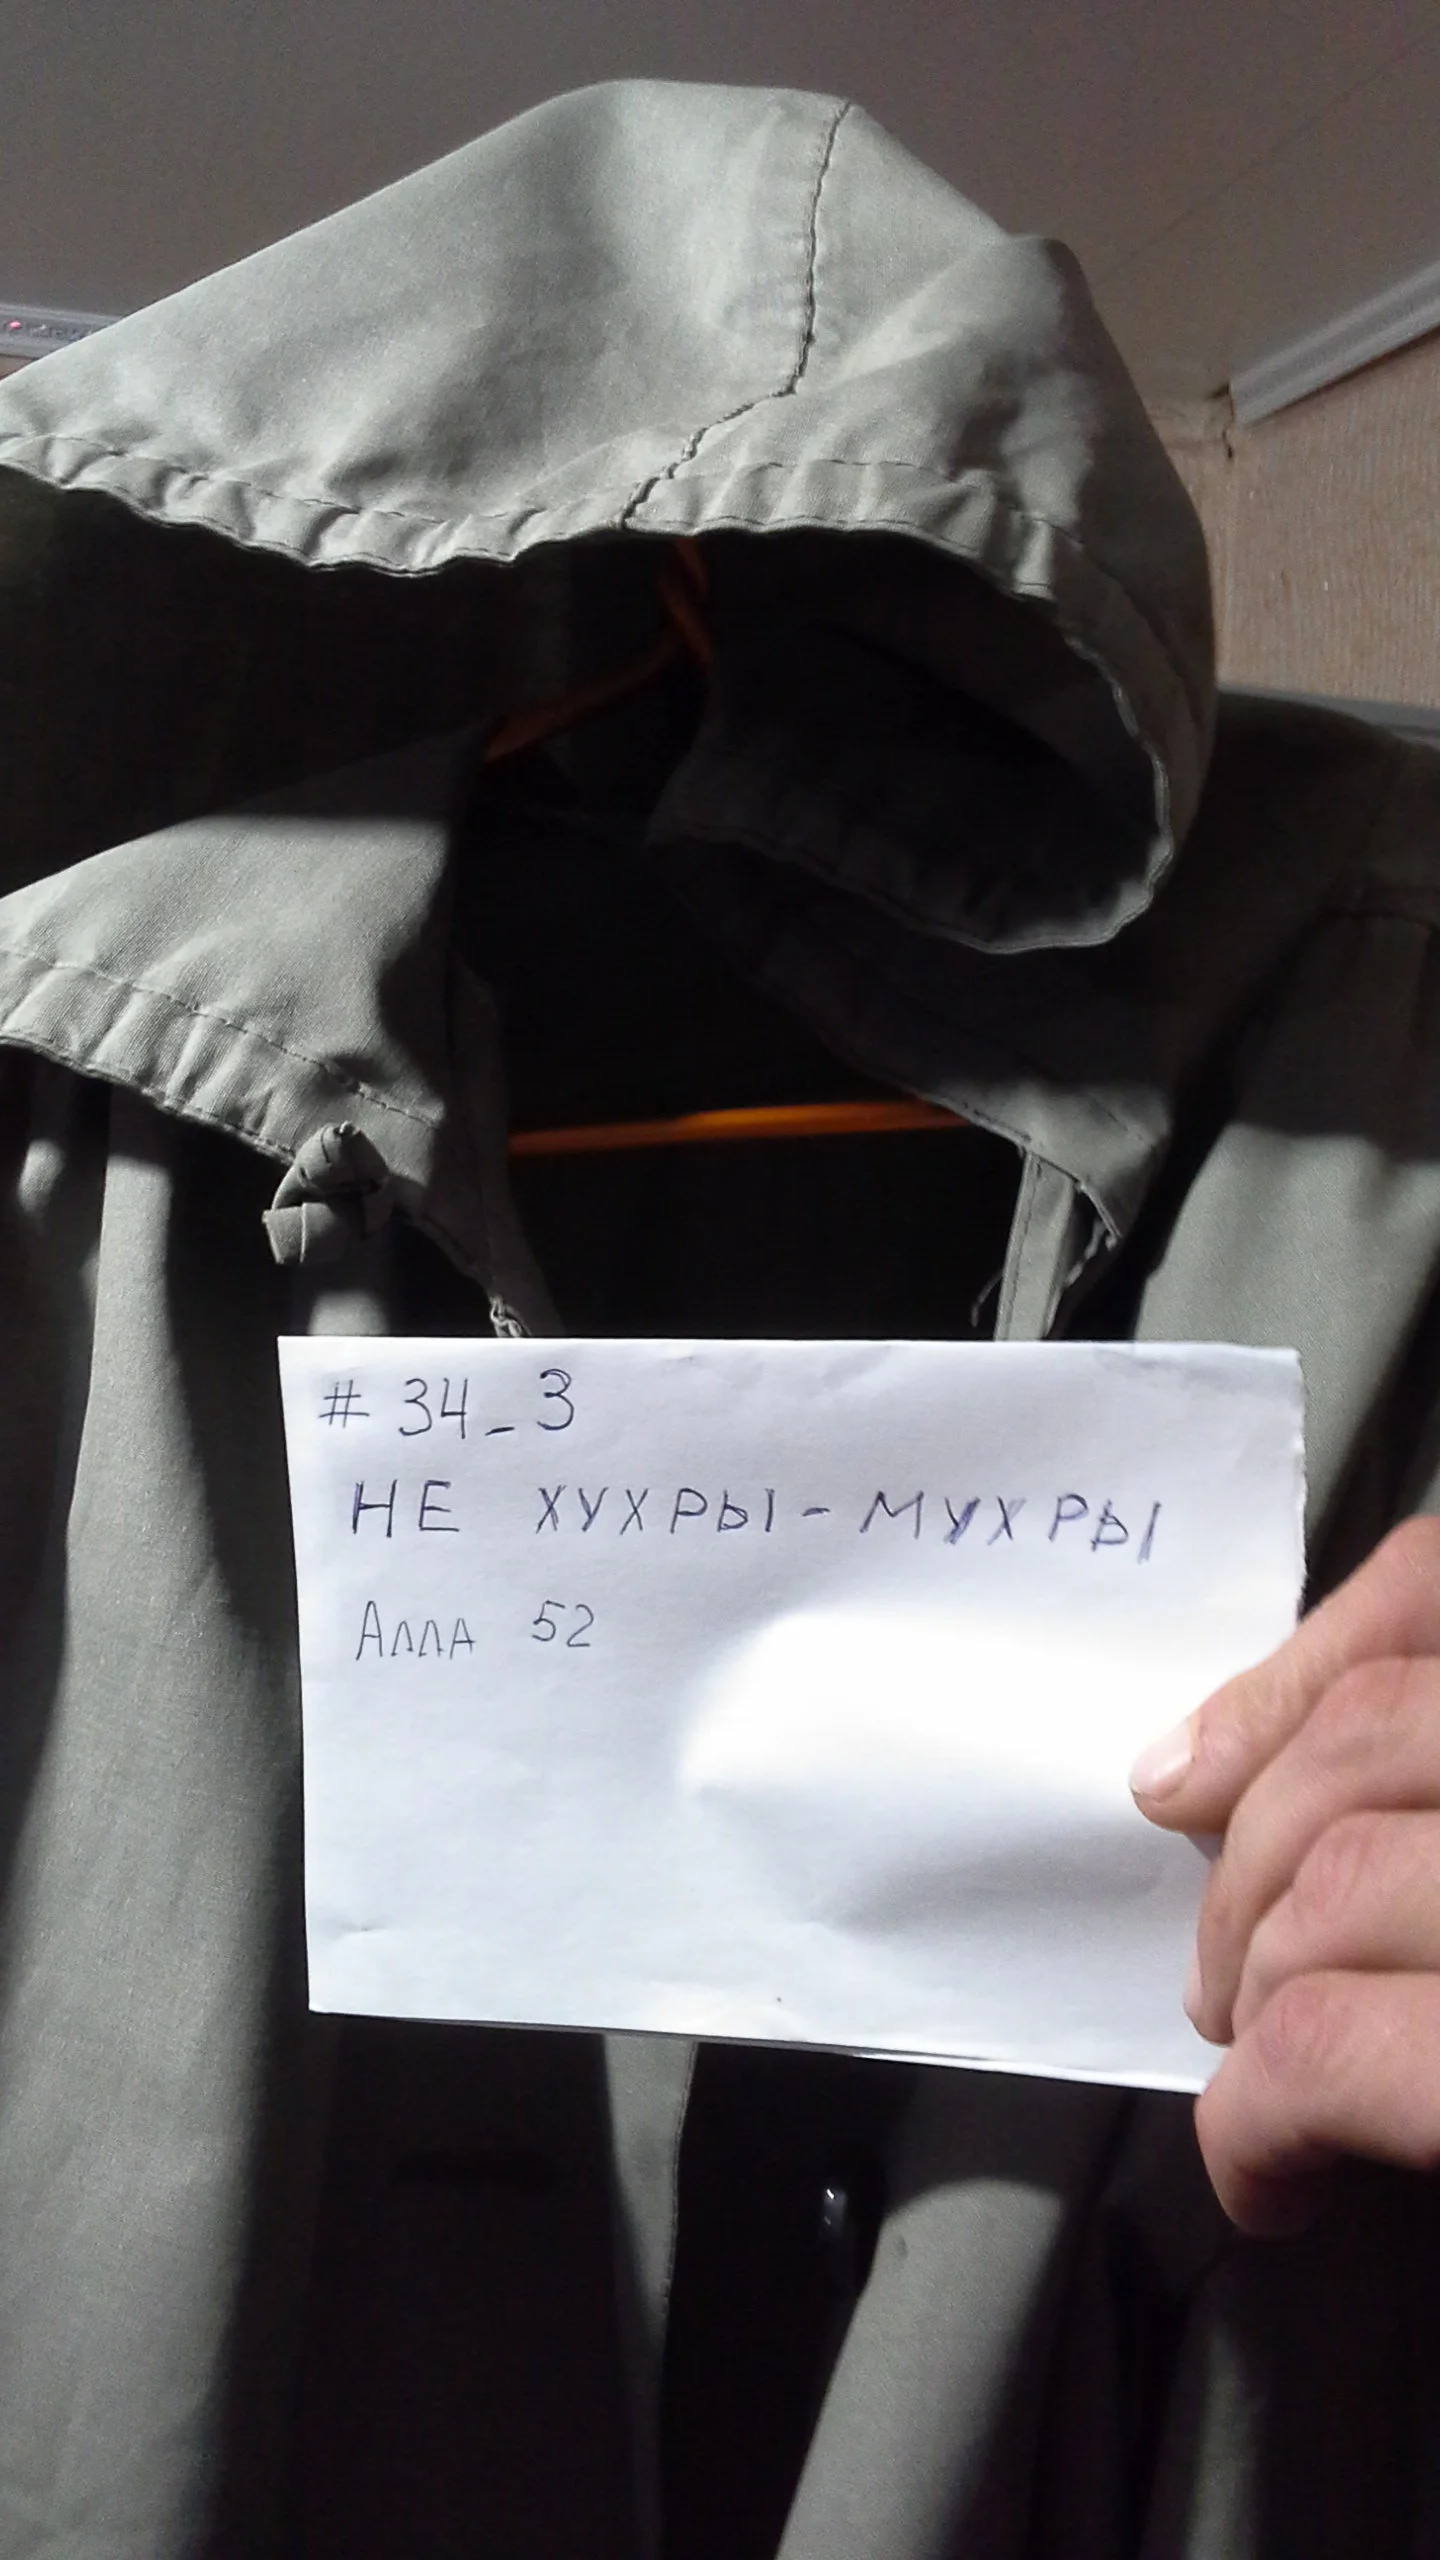 # 34_3
НЕ ХУХРЫ-МУХРЫ
Алла 52